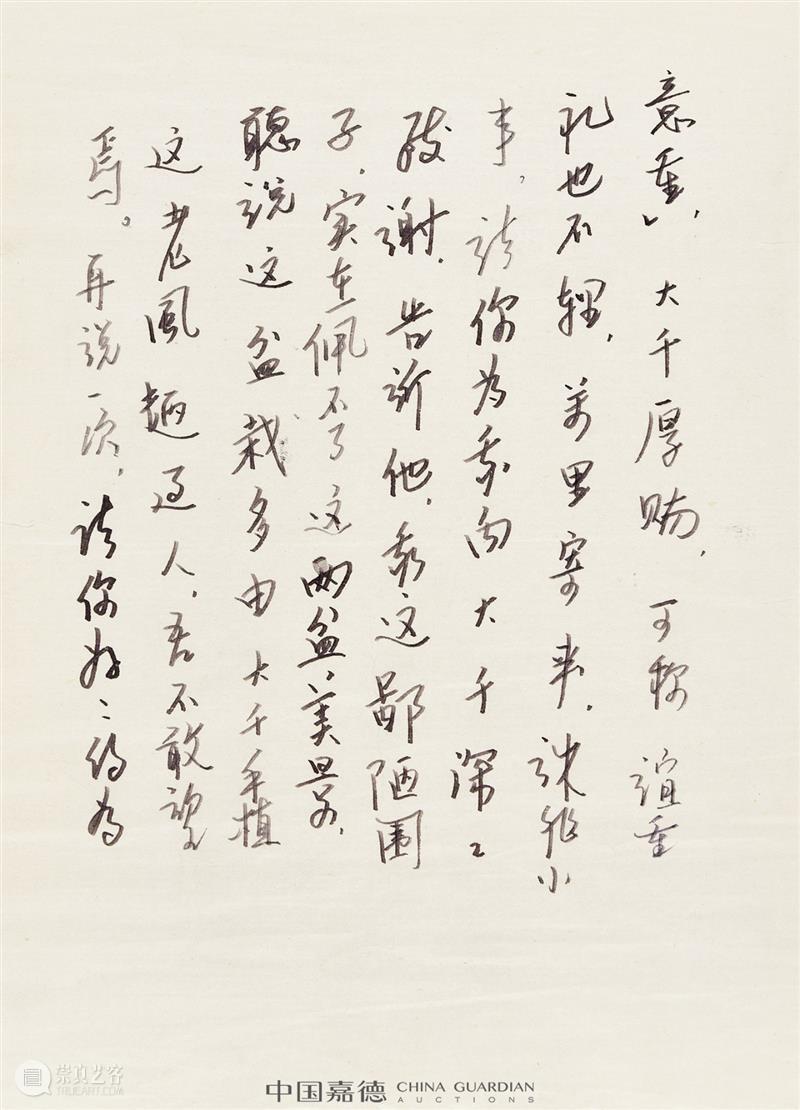 意重」，大千厚贶，可称谊重
礼也不轻，万里寄来，诛非小
事，请你为我向大千深〻
致谢，告诉他，我这鄙陋园
子，实在佩不了这两盆美景，
聽说这盆栽多由大千手植
这老風趣过人，吾不敢望
焉。再说一次，请你好〻的为
崇真艺客
TRUEART.COM
中国嘉德 CHINA GUARDIAN
AUCTIONS